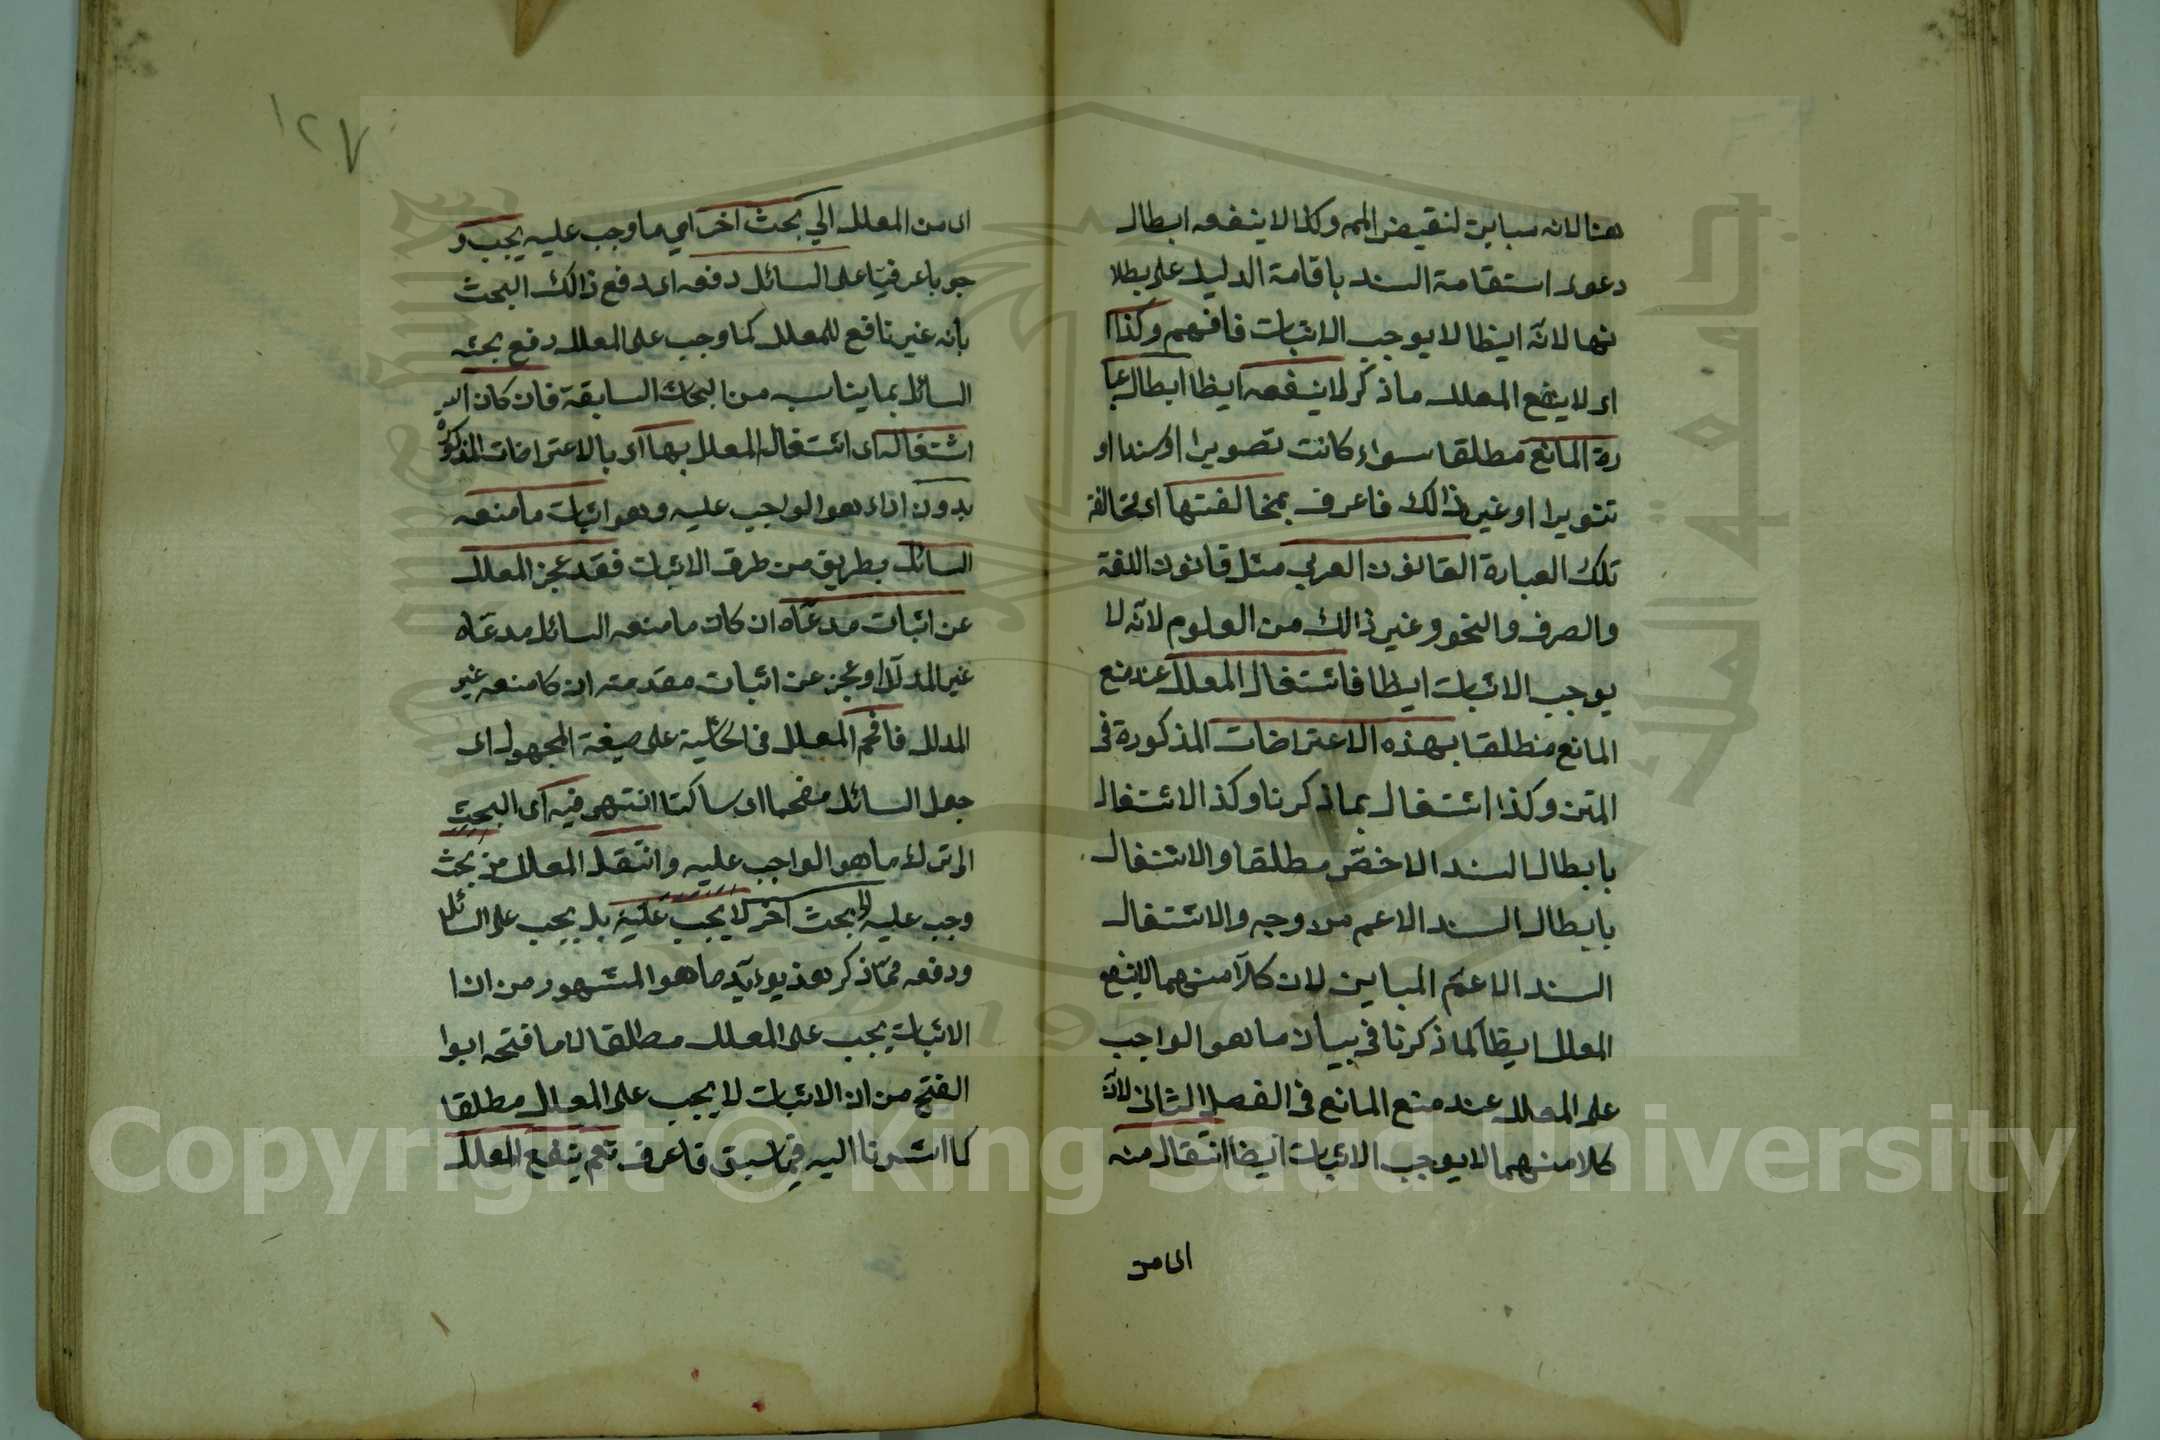 هنا لانه مباين لنقيض المم وكذا لا ينفعه ابطال
دعوى استقامة السند باقامة الدليل على بطلا
نها لانه ايظا لا يوجب الاثبات فافهم وكذا
اى لا ينفع المعلل ماذكر لا ينفعه ايظا ابطال عبا
رة المانع مطلقا سواء كانت تصويرا او سندا او
تنويرا او غير ذالك فاعرف بمخالفتها اى مخالفة
تلك العبارة القانون العربي مثل قانون اللغة
والصرف والنحو وغير ذالك من العلوم لانه لا
يوجب الاثبات ايظا فاشتغال المعلل عند منع
المانع مطلقا بهذه الاعتراضات المذكورة فى
المتن وكذا اشتغال بماذكرنا وكذ الاشتغال
بابطال السند الاخص مطلقا والاشتغال
بابطال السند الاعم من وجه والاشتغال
السند الاعم المباين لان كلا منهما لا ينفع
المعلل ايظا كما ذكرنا فى بيان ما هو الواجب
على المعلل عند منع المانع فى الفصل الثانى لان
كلا منهما لا يوجب الاثبات ايضا انتقال منه
اى من
اى من المعلل الي بحث اخر اي ما وجب عليه يجب و
جوبا عرفيا على السائل دفعه اى دفع ذالك البحث
بانه غير نافع للمعلل كما وجب على المعلل دفع بحثه
السائل بما يناسب من البحاث السابقة فان كان
اشتغاله اى اشتغال المعلل بها اى بالاعتراضات المذكورة
بدون اداء هو الواجب عليه وهو اثبات ما منعه
السائل بطريق من طرق الاثبات فقد عجز المعلل
عن اثبات مدعاه ان كان ما منعه السائل مدعاه
غير المدلل او عجز عن اثبات مقدمته ان كا منعه غير
المدلل فافحم المعلل فى الحاشية على صيغة المجهول اى
جعل السائل مفحما اى ساكتا انتهى فيه اى البحث
الى ترك ما هو الواجب عليه وانتقل المعلل من بحث
وجب عليه الى بحث آخر لا يجب عليه بل يجب على السائل
ودفعه مما ذكر هذ يؤيد ما هو المشهور من ان
الاثبات يجب على المعلل مطلقا لا ما فتحه ابوا
الفتح من ان الاثبات لا يجب على المعلل مطلقا
كما اشرنا اليه فيما سبق فاعرف نعم ينفع المعلل
١٢٧
Copyright © King Saud University
جامعة الملك سعود
1957